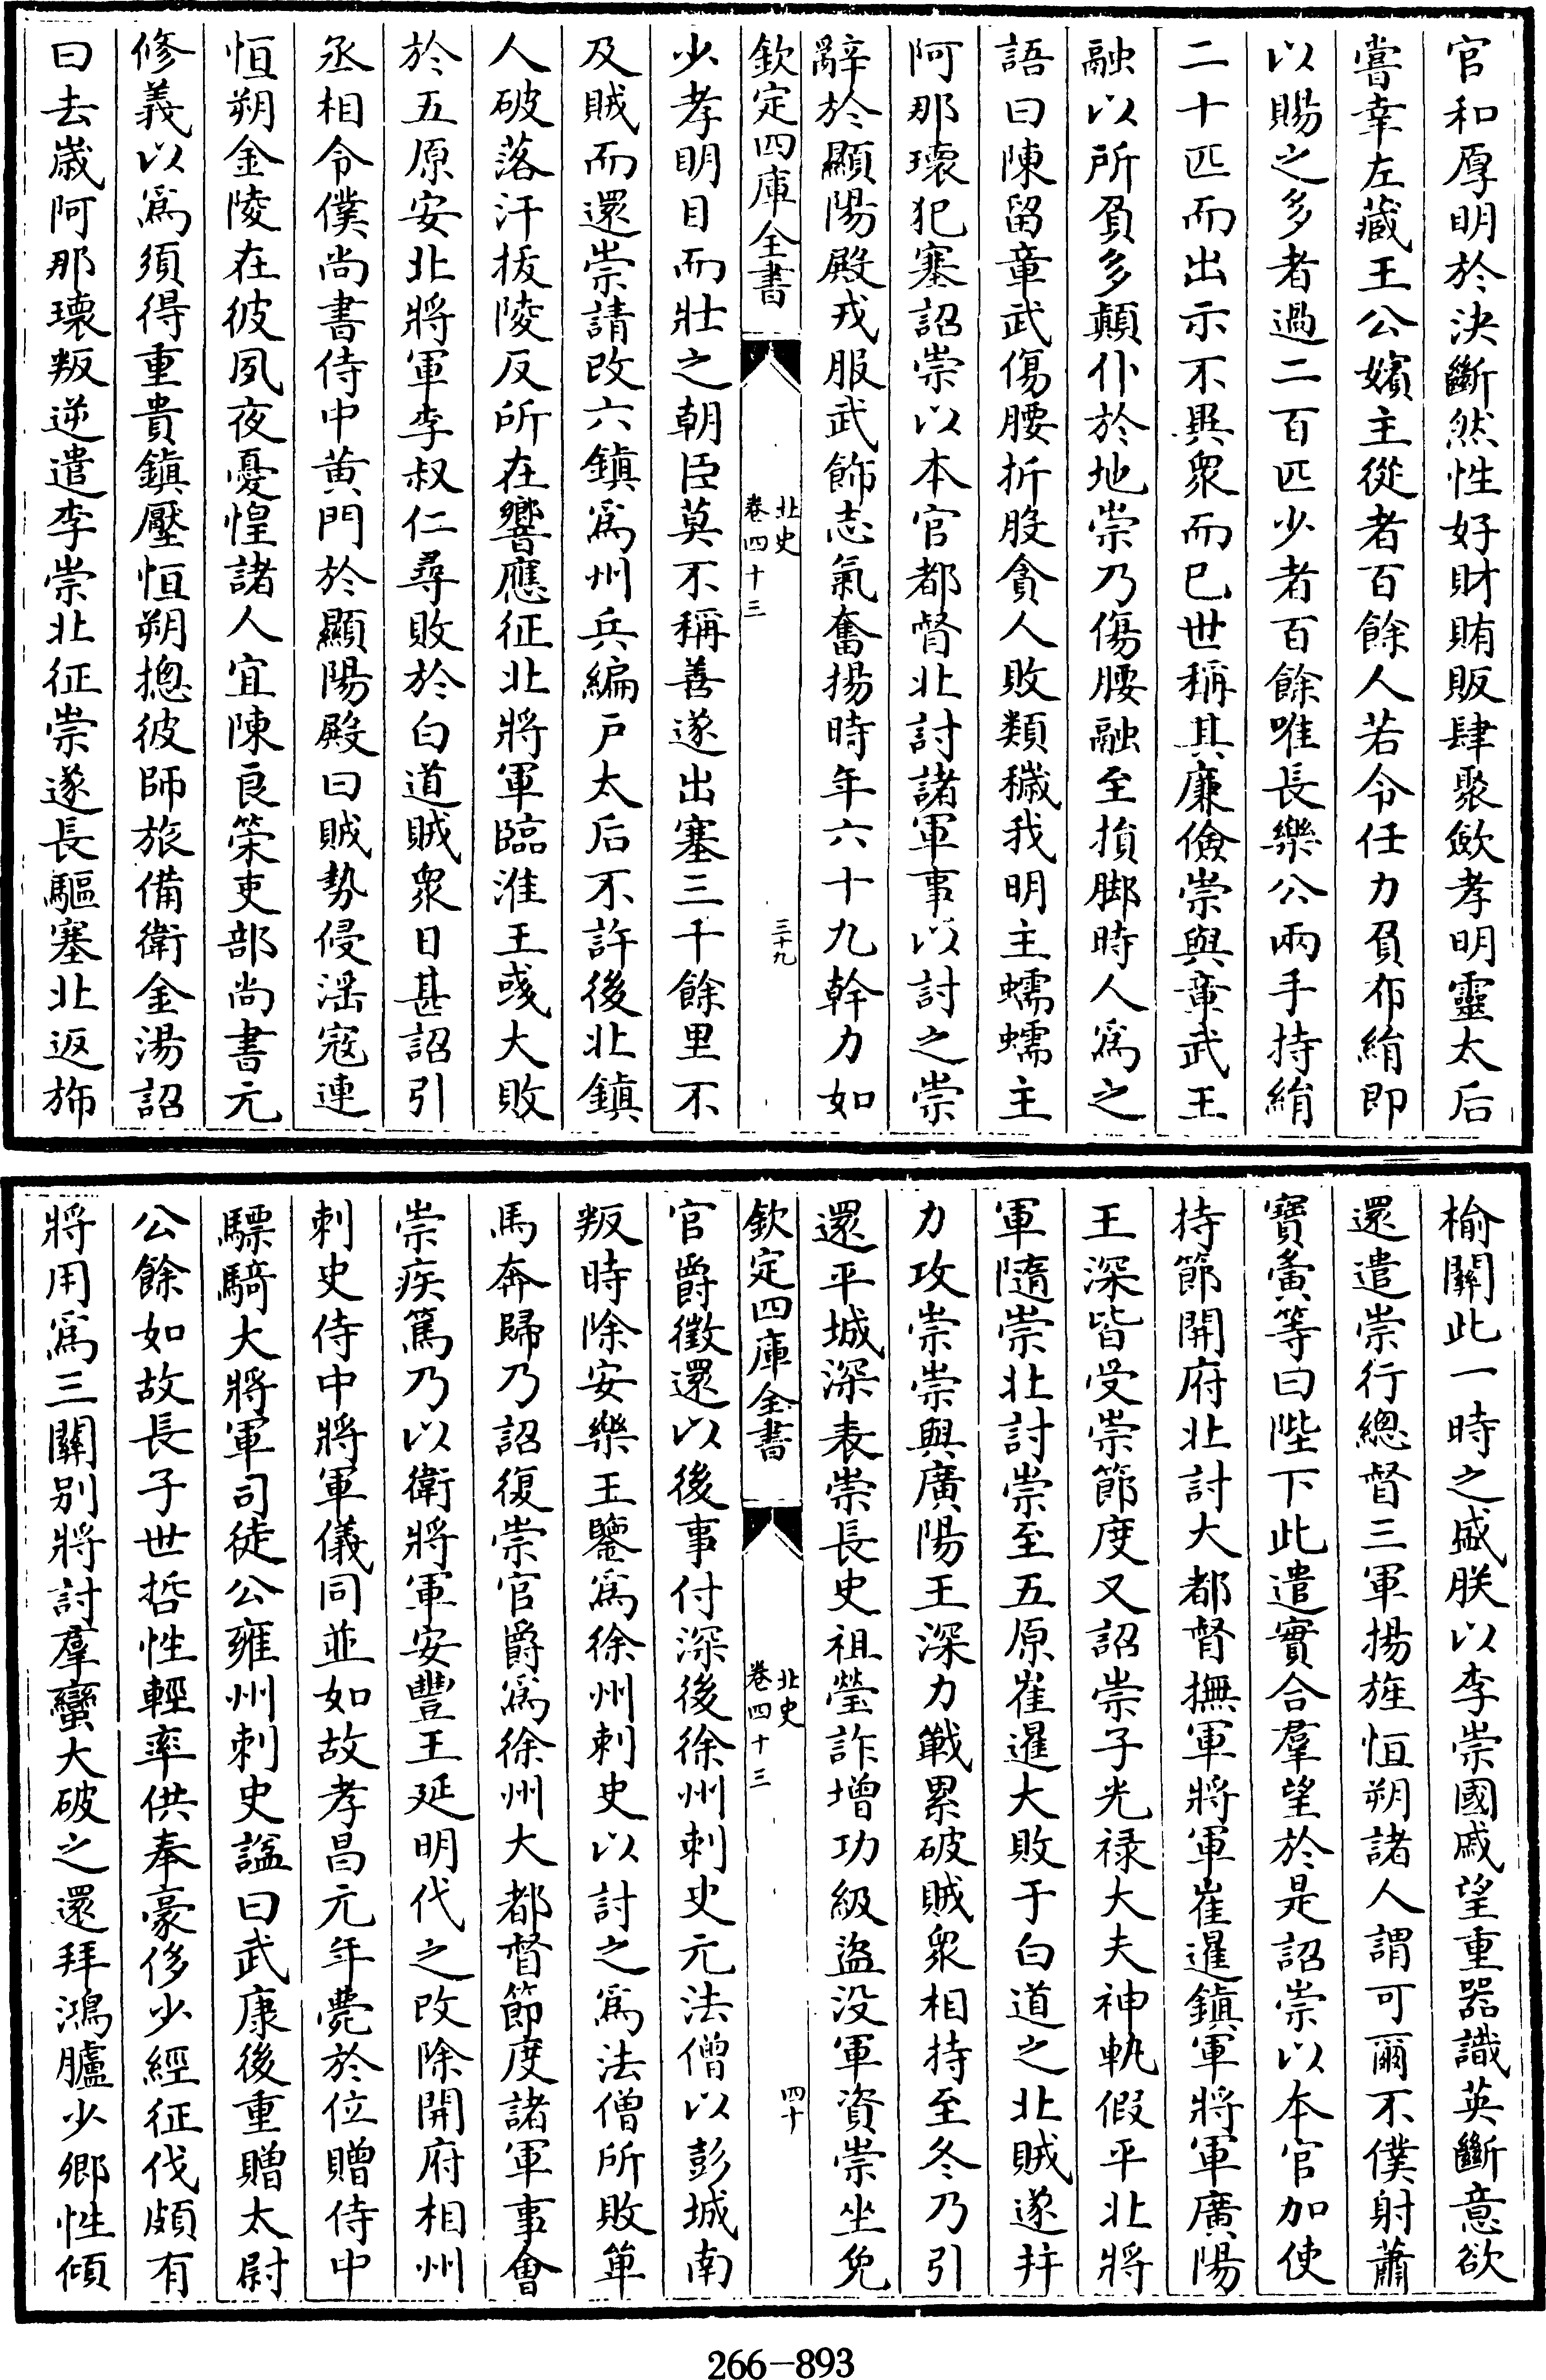 官和厚明於決斷然性好財賄販肆聚斂孝明靈太后
嘗幸左藏王公嬪主從者百餘人若令任力負布絹即
以賜之多者過二百匹少者百餘唯長樂公兩手持絹
二十匹而出示不異衆而已世稱其廉儉崇與章武王
融以所負多顛仆於地崇乃傷腰融至損脚時人爲之
語曰陳留章武傷腰折股貪人敗類穢我明主蠕蠕主
阿那瓌犯塞詔崇以本官都督北討諸軍事以討之崇
辭於顯陽殿戎服武飾志氣奮揚時年六十九幹力如
欽定四庫全書
北史
卷四十三
三十九
少孝明目而壯之朝臣莫不稱善遂出塞三千餘里不
及賊而還崇請改六鎮爲州兵編户太后不許後北鎮
人破落汗拔陵反所在響應征北將軍臨淮王彧大敗
於五原安北將軍李叔仁尋敗於白道賊衆日甚詔引
丞相令僕尚書侍中黄門於顯陽殿曰賊勢侵淫寇連
恒朔金陵在彼夙夜憂惶諸人宜陳良策吏部尚書元
修義以爲須得重貴鎮壓恒朔揔彼師旅備衛金湯詔
曰去歲阿那瓌叛逆遣李崇北征崇遂長驅塞北返斾
榆關此一時之盛朕以李崇國戚望重器識英斷意欲
還遣崇行總督三軍揚旌恒朔諸人謂可爾不僕射蕭
寶夤等曰陛下此遣實合羣望於是詔崇以本官加使
持節開府北討大都督撫軍將軍崔暹鎮軍將軍廣陽
王深皆受崇節度又詔崇子光禄大夫神軌假平北將
軍隨崇北討崇至五原崔暹大敗于白道之北賊遂并
力攻崇崇與廣陽王深力戰累破賊衆相持至冬乃引
還平城深表崇長史祖瑩詐增功級盜没軍資崇坐免
欽定四庫全書
北史
卷四十三
四十
官爵徵還以後事付深後徐州刺史元法僧以彭城南
叛時除安樂王鑒爲徐州刺史以討之爲法僧所敗單
馬奔歸乃詔復崇官爵爲徐州大都督節度諸軍事會
崇疾篤乃以衛將軍安豐王延明代之改除開府相州
刺史侍中將軍儀同並如故孝昌元年薨於位贈侍中
驃騎大將軍司徒公雍州刺史諡曰武康後重贈太尉
公餘如故長子世哲性輕率供奉豪侈少經征伐頗有
將用爲三關别將討羣蠻大破之還拜鴻臚少卿性傾
266-893